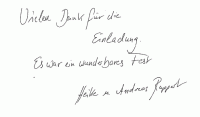 Vielen Dank für die
Einladung.
Es war ein wunderbares Fest
Heike u Andreas Ruppert